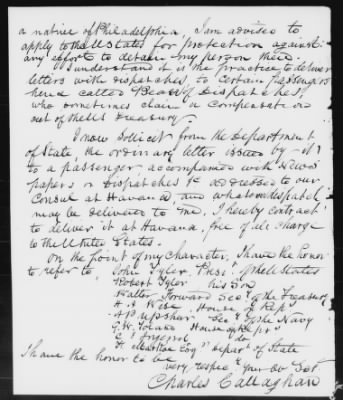 a native of Philadelphia. I am advised to
apply to the U States for protection against
any effort to detain my person there.
I understand it is the practice to deliver
letters with dispatches, to certain passengers
hence called Bearers of Dispatches,
who sometimes claim a compensation
out of the U S Treasury.
I now solicit from the Department
of State, the ordinary letter issued by it
to a passenger, accompanied with News
papers or Dispatches &c addressed to our
Consul at Havana, and whatever dispatch
may be delivered to me, I hereby contract
to deliver it at Havana, free of all charge
to the United States.
On the point of my character, I have the honor
to refer to, John Tyler, Prest. of the U States
Robert Tyler his Son
Walter Forward Secy of the Treasury
H A Wise House of Reps
A P Upshur Secy of the Navy
House of Reps
C J Ingersoll do
Esq Depart of State
I have the honor to be
very respec. Your Ob Svt
Charles Callaghan